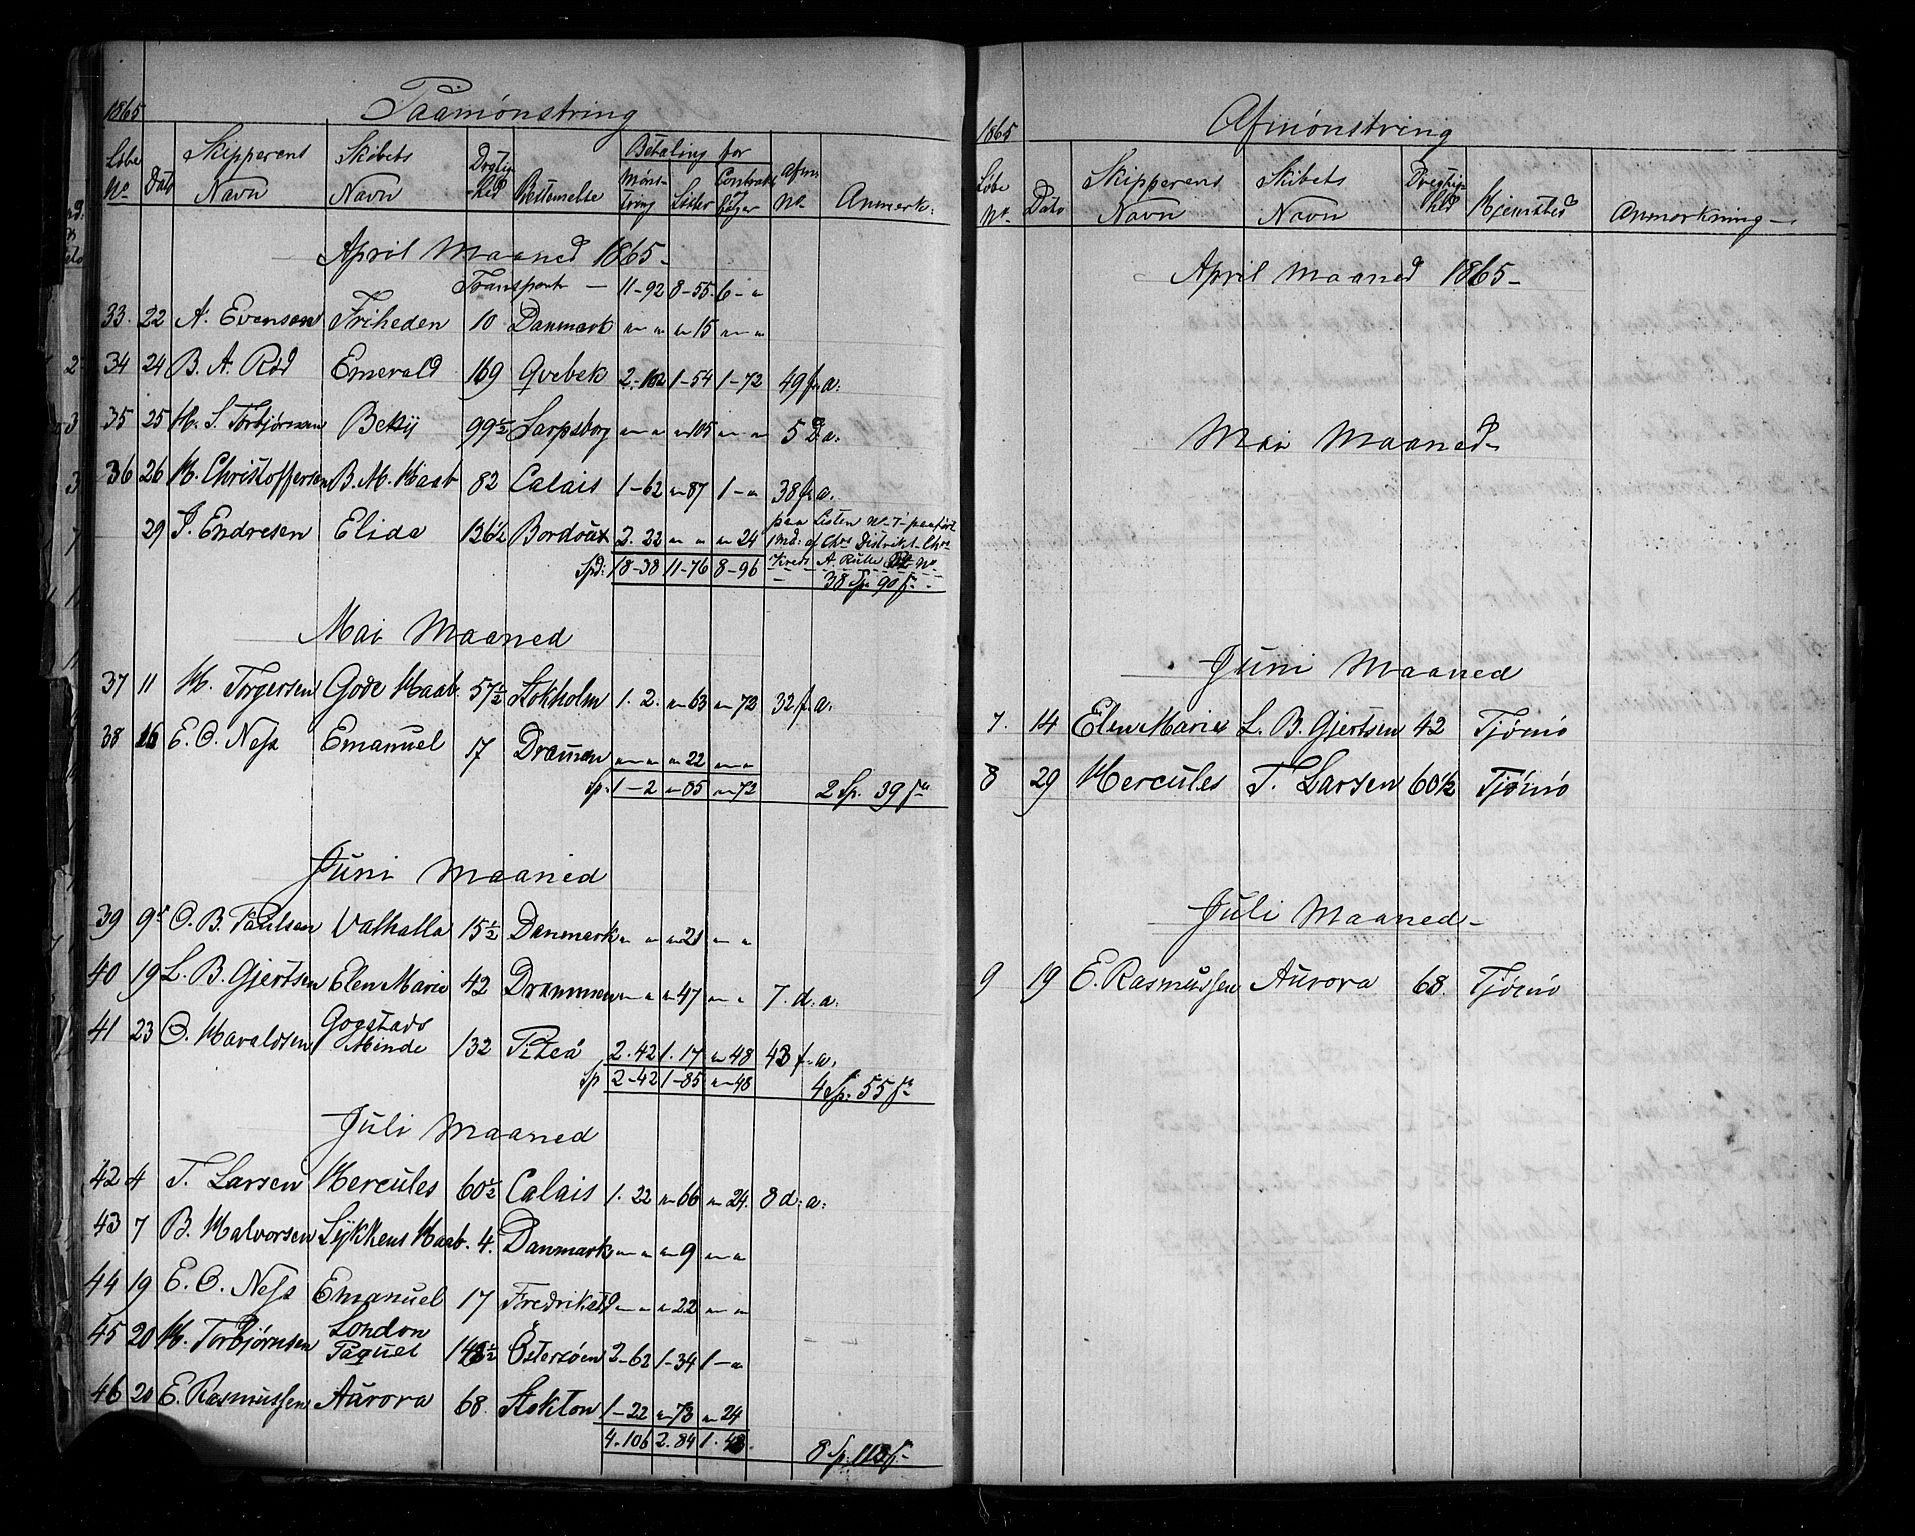 1865 Paamønstring
Løbe No Dato Skipperens Navn Skibets Navn Drægtighed Bestemelse Betaling for Mønstring Lister Contrakt bøger Afm: No Anmærk:
April Maaned 1865
Transport — 11-92 8-55 6-"
33. 22 A. Evensen Friheden 10 Danmark " " "15 " "
34 24 B. A. Röd Emerald 169 Qvebek 2.-102 1-54 1-72 49 f. a.
35 25 H. S. Torbjörnsen Betty 99½ Sarpsborg " " "105 " " 5 D a.
36 26 H. Christoffersen B. M. Haab 82 Calais 1-62 "87 1-" 38 f. a.
29 J. Endresen Elida 136½ Bordoux 2. 22 " " "24 paa Listen No 7 paaført
1 Md: af Chra Distrikt Chra
Spd: 18-38 11-76 8-96 Kreds A. Rulle No
38 Sp 90 s
Mai Maaned
37 11 H. Torgersen Gode Haab. 57½ Stokholm 1. 2. "63 "72 32 f. a.
38 16 E. O. Ness Emanuel 17 Dramen " " "22 " "
Sp: 1-2 "85 "72 2 Sp. 39 s
Juni Maaned
39 9 O. B. Paulsen Valhalla 15½ Danmark " " "21 " "
40 19 L. B. Gjertsen Elen Marie 42 Drammen " " "47 " " 7. d. a.
41 23 O. Haraldsen Gogstads Minde 132 Piteå 2. 42 1. 17 "48 43 f. a.
Sp 2-42 1-85 "-48 4 Sp. 55 s
Juli Maaned
42 4 T. Larsen Hercules 60½ Calais 1. 22 "66 "24. 8 d. a.
43 7 B. Halvorsen Lykkens Haab. 4. Danmark " " "9 " "
44 19 E. O. Ness Emanuel 17 Fredrikstd " " "22 " "
45 20 H. Torbjørnsen London Paquet 148½ Östersöen 2-62 1-34 1-"
46 20 E. Rasmussen Aurora 68. Stokton 1-22 "-73 "24
4. 106 2. 84 1. 48. 8 Sp. 118 s
1865 Afmønstring
Løbe No. Dato Skipperens Navn Skibets Navn Drægtighed Hjemsted Anmærkning
April Maaned 1865
Mai Maaned
Juni Maaned
7. 14 Elen Marie L. B. Gjertsen 42 Tjømø
8 29 Hercules T. Larsen 60½ Tjømø
Juli Maaned
9 19 E. Rasmussen Aurora 68. Tjømø